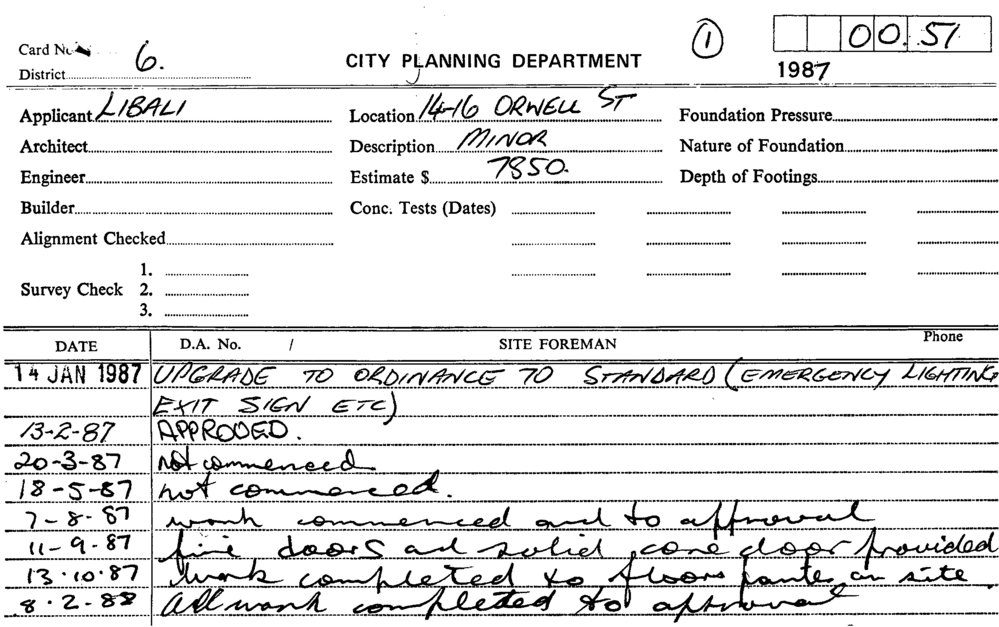 1 00.51
Card No. 6.
District
CITY PLANNING DEPARTMENT
1987
Applicant LIBALI Location 14-16 ORWELL ST Foundation Pressure
Architect Description MINOR Nature of Foundation
Engineer Estimate $ 7850. Depth of Footings
Builder Conc. Tests (Dates)
Alignment Checked
1.
Survey Check 2.
3.
DATE D.A. No. / SITE FOREMAN Phone
14 JAN 1987 UPGRADE TO ORDINANCE TO STANDARD (EMERGENCY LIGHTING
EXIT SIGN ETC)
13-2-87 APPROOED.
20-3-87 not commenced
18-5-87 not commenced.
7-8-87 work commenced and to approval
11-9-87 fire doors ad solid core door provided
13.10.87 Work completed to floors on site
8.2.88 All work completed to approval